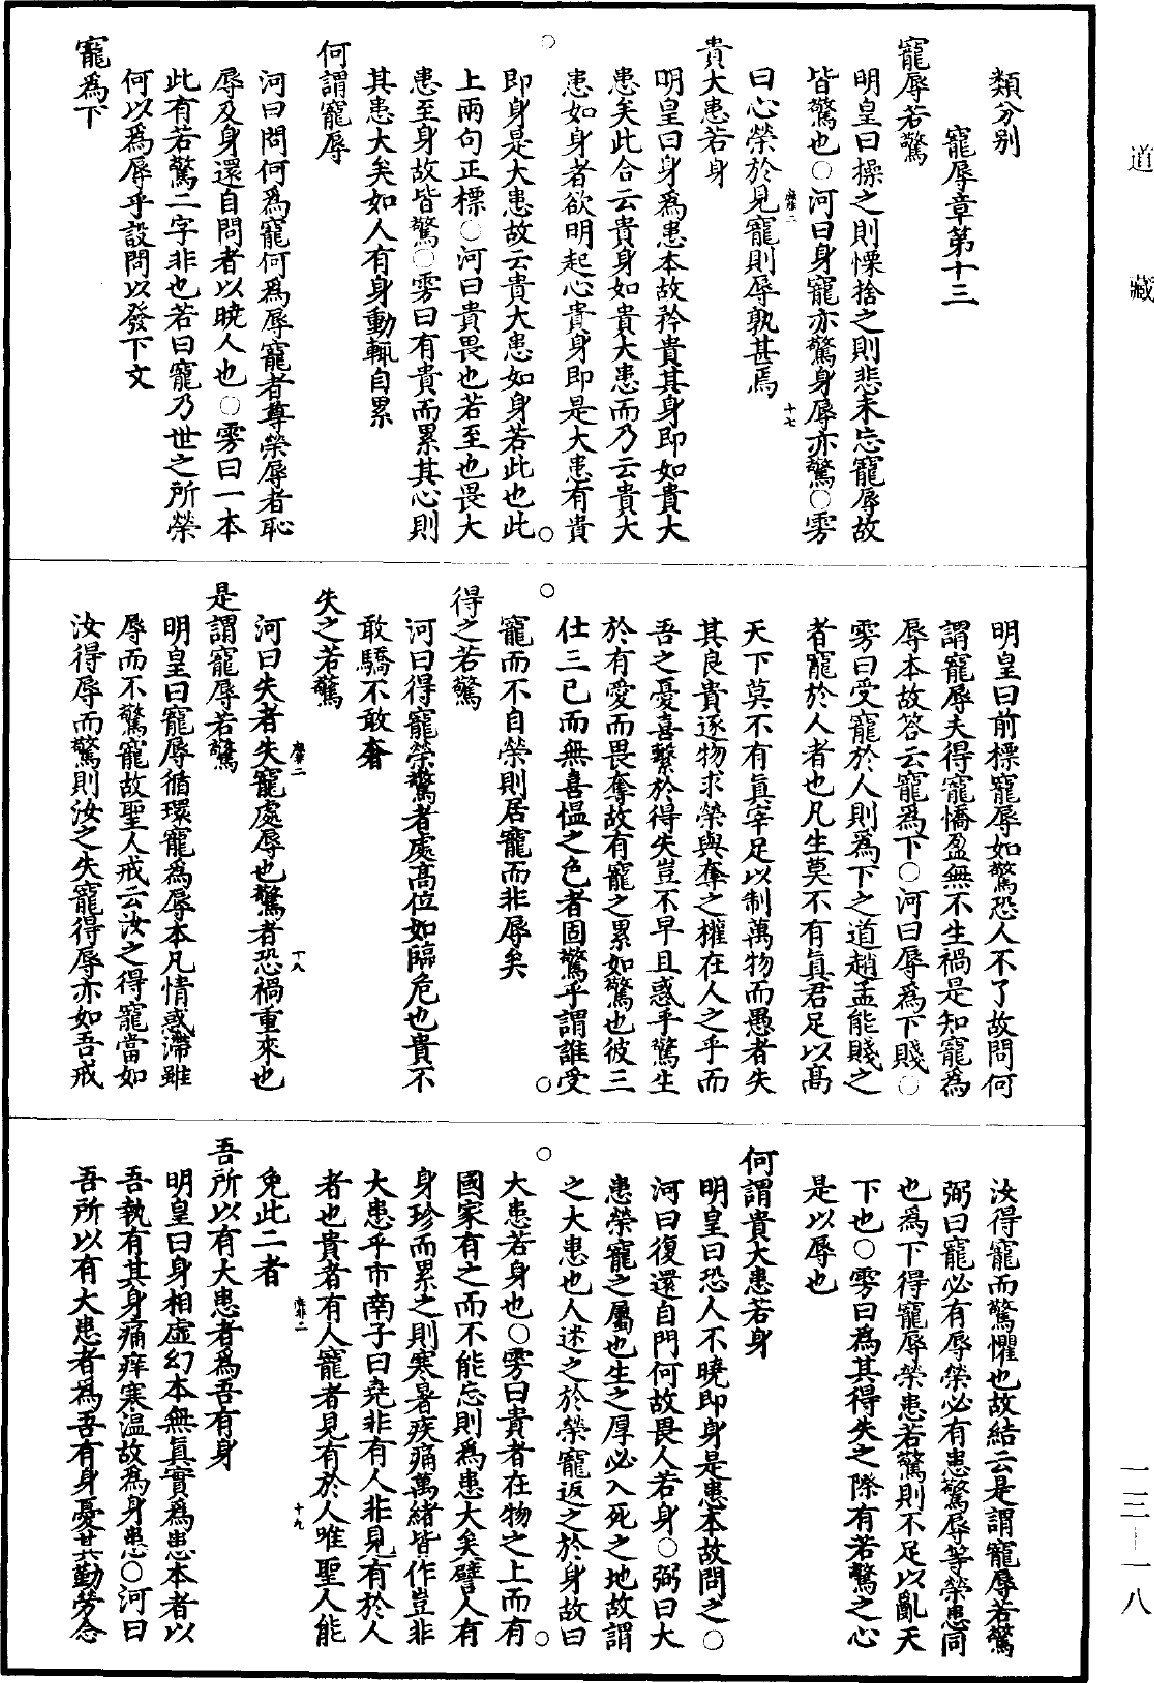 道藏
類分別
寵辱章第十三
寵辱若驚
明皇曰操之則慄捨之則悲未忘寵辱故
皆驚也○河曰身寵亦驚身辱亦驚○雱
曰心榮於見寵則辱孰甚焉
貴大患若身
明皇曰身為患本故矜貴其身即如貴大
患矣此合云貴身如貴大患而乃云貴大
患如身者欲明起心貴身即是大患有貴
即身是大患故云貴大患如身若此也此
上兩句正標○河曰貴畏也若至也畏大
患至身故皆驚○雱曰有貴而累其心則
其患大矣如人有身動輒自累
何謂寵辱
河曰問何為寵何為辱寵者尊榮辱者恥
辱及身還自問者以曉人也○雱曰一本
此有若驚二字非也若曰寵乃世之所榮
何以為辱乎設問以發下文
寵為下
明皇曰前標寵辱如驚恐人不了故問何
謂寵辱夫得寵憍盈無不生禍是知寵為
辱本故答云寵為下○河曰辱為下賤○
雱曰受寵於人則為下之道趙孟能賤之
者寵於人者也凡生莫不有真君足以高
天下莫不有真宰足以制萬物而愚者失
其良貴逐物求榮與奪之權在人之乎而
吾之憂喜繫於得失豈不早且惑乎驚生
於有愛而畏奪故有寵之累如驚也彼三
仕三已而無喜愠之色者固驚乎謂誰受
寵而不自榮則居寵而非辱矣
得之若驚
河曰得寵榮驚者處高位如臨危也貴不
敢驕不敢奢
失之若驚
河曰失者失寵處辱也驚者恐禍重來也
是謂寵辱若驚
明皇曰寵辱循環寵為辱本凡情惑滯雖
辱而不驚寵故聖人戒云汝之得寵當如
汝得辱而驚則汝之失寵得辱亦如吾戒
汝得寵而驚懼也故結云是謂寵辱若驚
弼曰寵必有辱榮必有患驚辱等榮患同
也為下得寵辱榮患若驚則不足以亂天
下也○雱曰為其得失之際有若驚之心
是以辱也
何謂貴大患若身
明皇曰恐人不曉即身是患本故問之○
河曰復還自門何故畏人若身○弼曰大
患榮寵之屬也生之厚必入死之地故謂
之大患也人迷之於榮寵返之於身故曰
大患若身也○雱曰貴者在物之上而有
國家有之而不能忘則為患大矣譬人有
身珍而累之則寒暑疾痛萬緒皆作豈非
大患乎市南子曰堯非有人非見有於人
者也貴者有人寵者見有於人唯聖人能
免此二者
吾所以有大患者為吾有身
明皇曰身相虛幻本無真實為患本者以
吾執有其身痛痒寒溫故為身患○河曰
吾所以有大患者為吾有身憂其勤勞念
十七
十八
十九
一三-一八